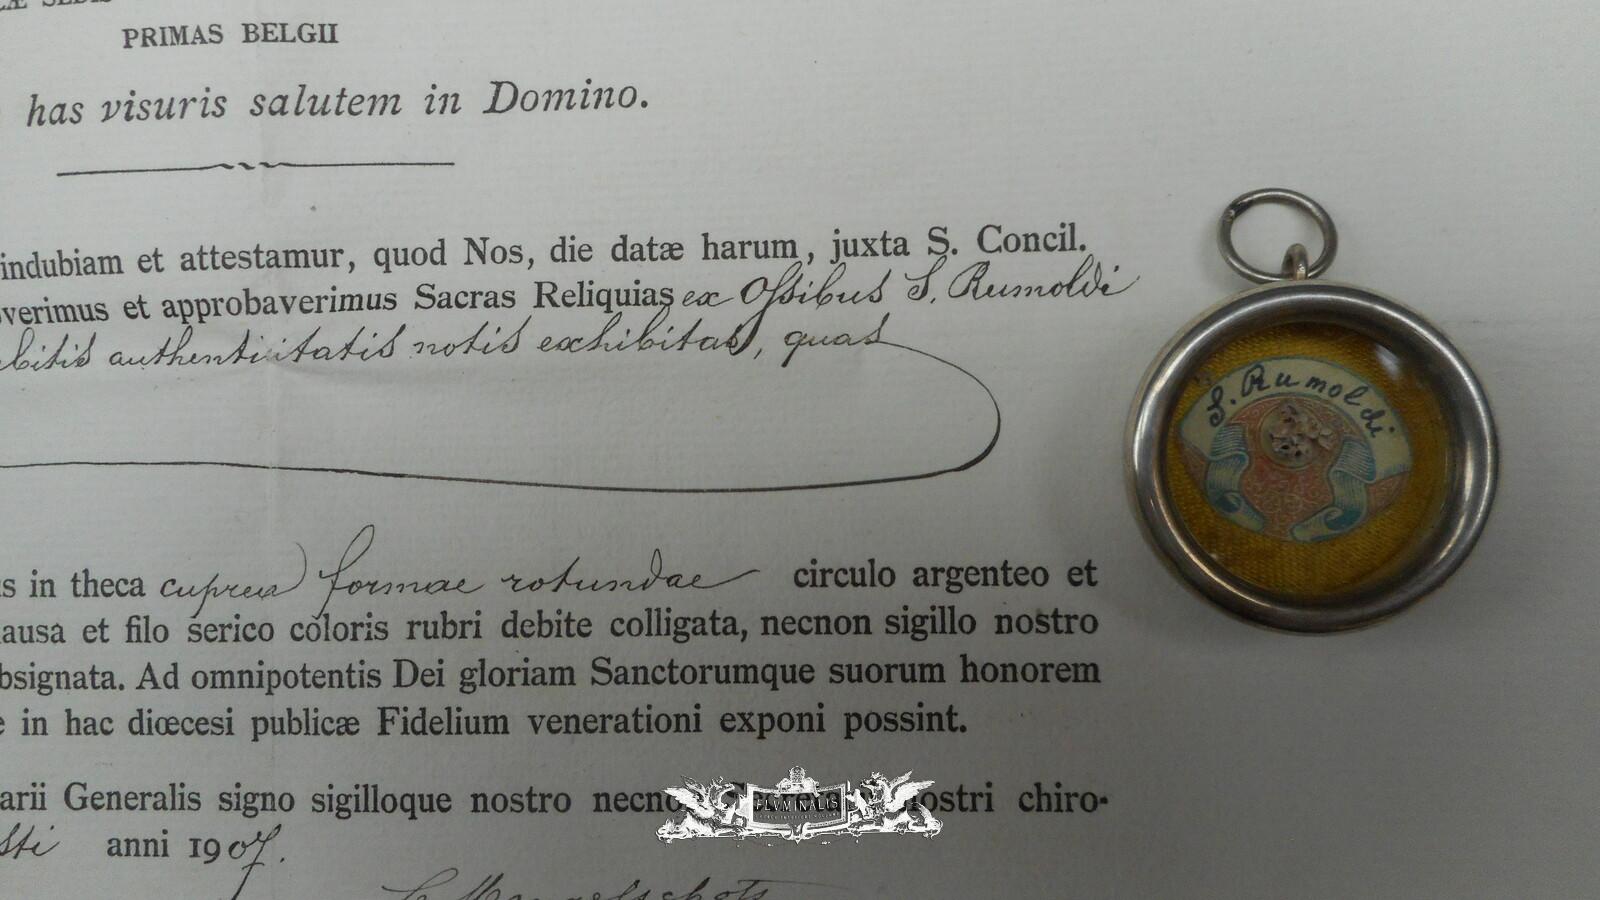 PRIMAS BELGII
has visuris salutem in Domino.
indubiam et attestamur, quod Nos, die datæ harum, juxta S. Concil.
overimus et approbaverimus Sacras Reliquias ex Ossibus S. Rumoldi
ebitis authenticitatis notis exhibitas, quas
S. Rumoldi
is in theca cuprea formae rotundae circulo argenteo et
lausa et filo serico coloris rubri debite colligata, necnon sigillo nostro
bsignata. Ad omnipotentis Dei gloriam Sanctorumque suorum honorem
e in hac diœcesi publicæ Fidelium venerationi exponi possint.
arii Generalis signo sigilloque nostro necno nostri chiro-
FLVMINALIS
sti anni 1907.